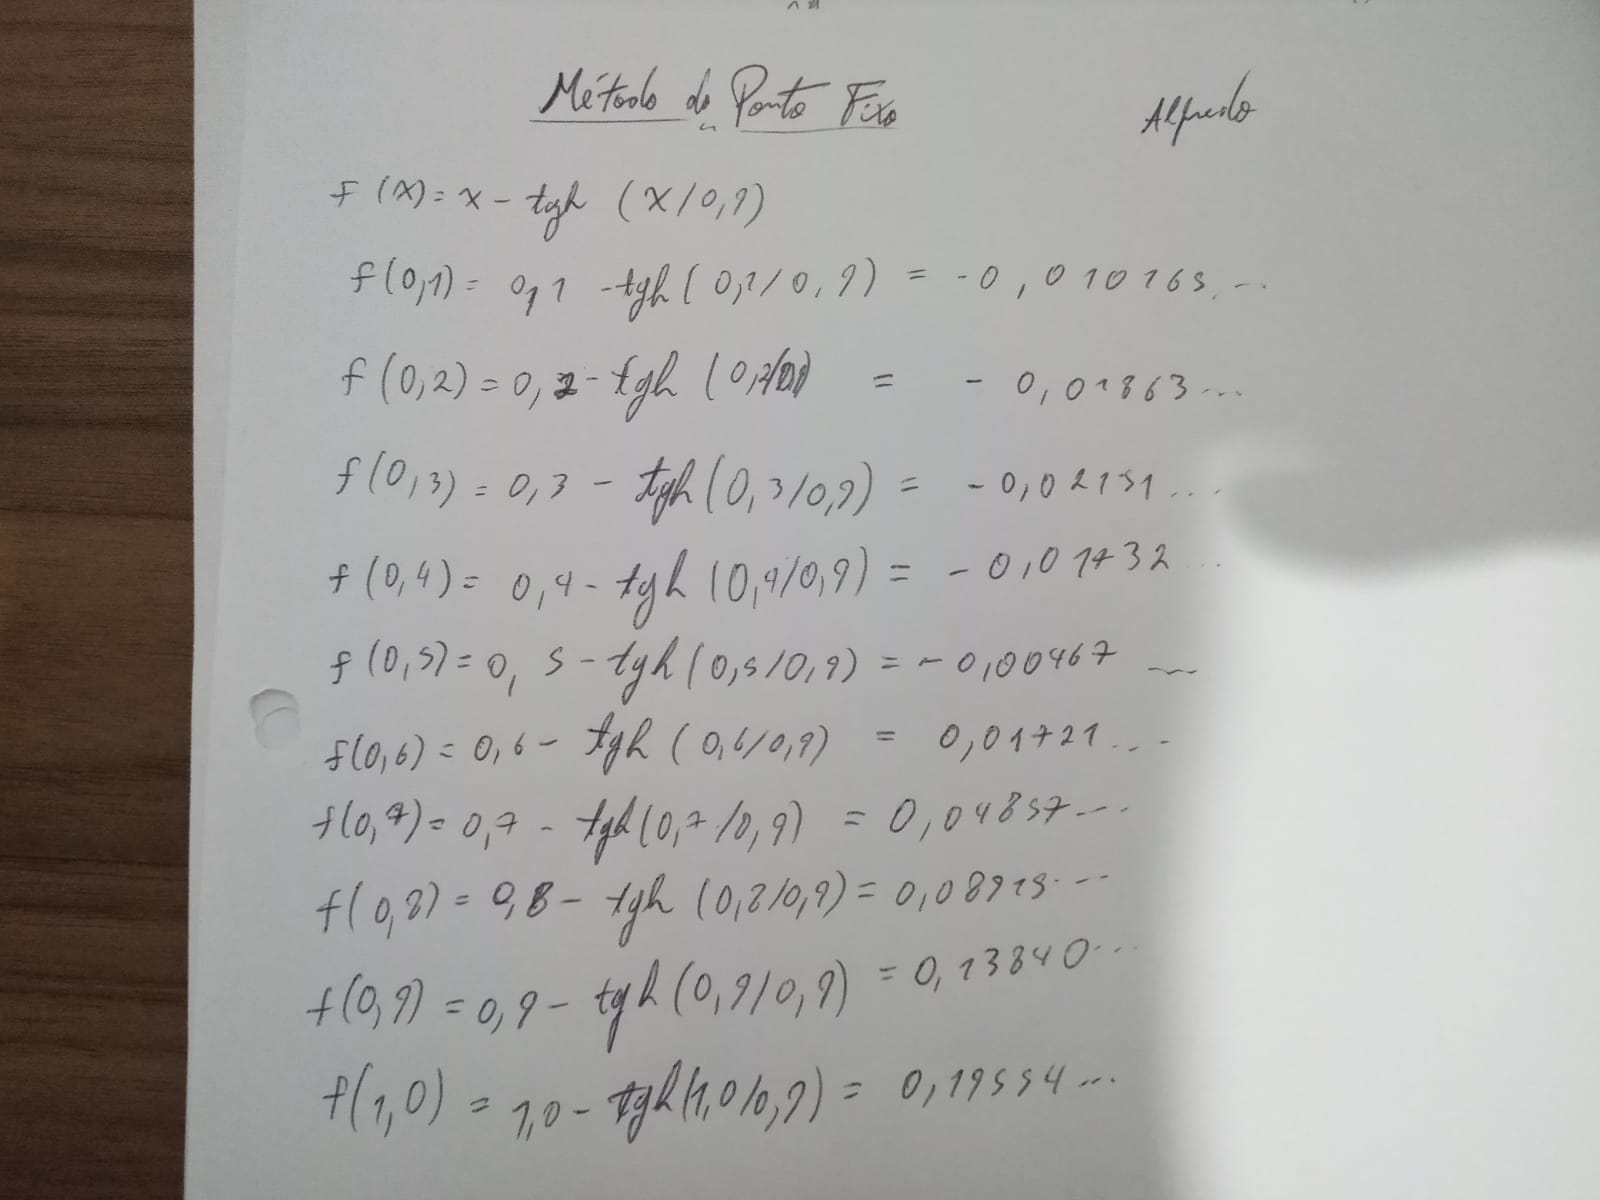 Método do Ponto Fixo
Alfredo
f(x) = x - tgh (x/0,9)
f(0,1) = 0,1 - tgh (0,1/0,9) = -0,010165...
f(0,2) = 0,2 - tgh (0,2/0,9) = -0,01863...
f(0,3) = 0,3 - tgh (0,3/0,9) = -0,02151...
f(0,4) = 0,4 - tgh (0,4/0,9) = -0,01732...
f(0,5) = 0,5 - tgh (0,5/0,9) = -0,00467...
f(0,6) = 0,6 - tgh (0,6/0,9) = 0,01721...
f(0,7) = 0,7 - tgh (0,7/0,9) = 0,04857...
f(0,8) = 0,8 - tgh (0,8/0,9) = 0,08915...
f(0,9) = 0,9 - tgh (0,9/0,9) = 0,13840...
f(1,0) = 1,0 - tgh (1,0/0,9) = 0,19554...